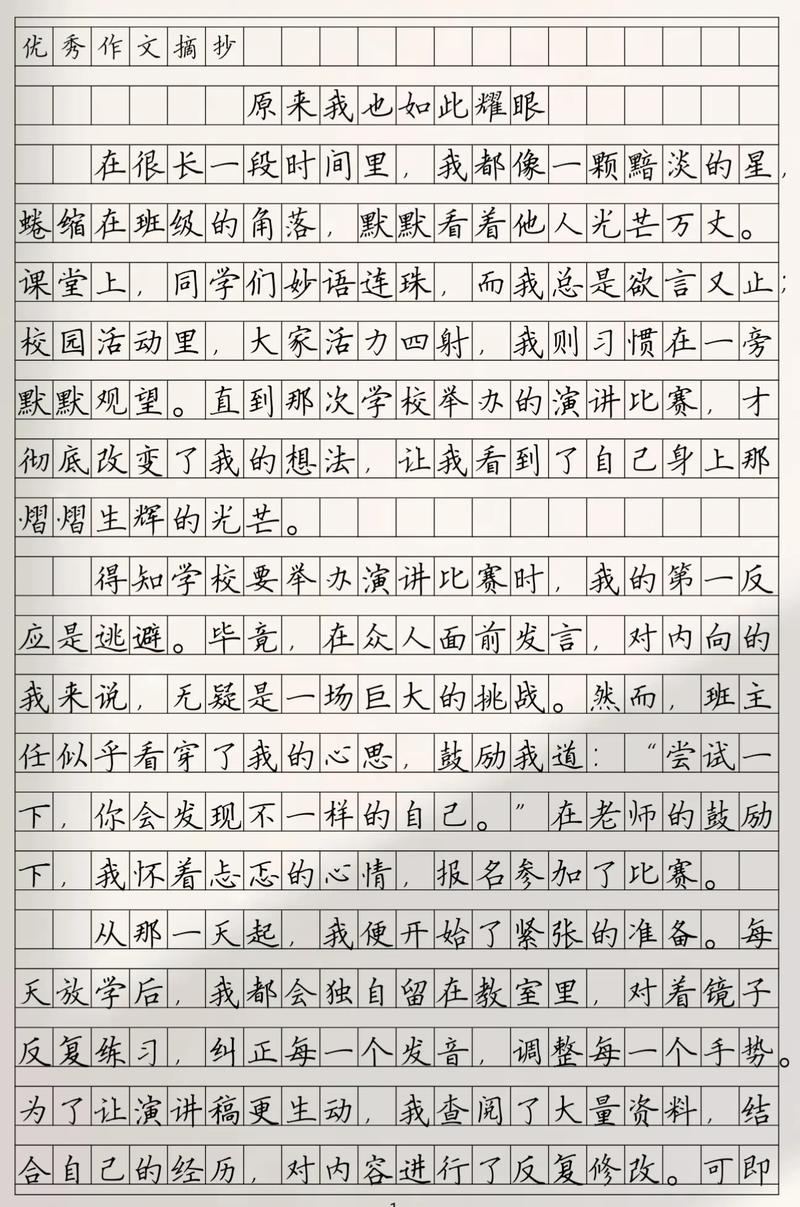 优秀作文摘抄
原来我也如此耀眼
在很长一段时间里，我都像一颗黯淡的星，
蜷缩在班级的角落，默默看着他人光芒万丈。
课堂上，同学们妙语连珠，而我总是欲言又止；
校园活动里，大家活力四射，我则习惯在一旁
默默观望。直到那次学校举办的演讲比赛，才
彻底改变了我的想法，让我看到了自己身上那
熠熠生辉的光芒。
得知学校要举办演讲比赛时，我的第一反
应是逃避。毕竟，在众人面前发言，对内向的
我来说，无疑是一场巨大的挑战。然而，班主
任似乎看穿了我的心思，鼓励我道：“尝试一
下，你会发现不一样的自己。”在老师的鼓励
下，我怀着忐忑的心情，报名参加了比赛。
从那一天起，我便开始了紧张的准备。每
天放学后，我都会独自留在教室里，对着镜子
反复练习，纠正每一个发音，调整每一个手势。
为了让演讲稿更生动，我查阅了大量资料，结
合自己的经历，对内容进行了反复修改。可即
1